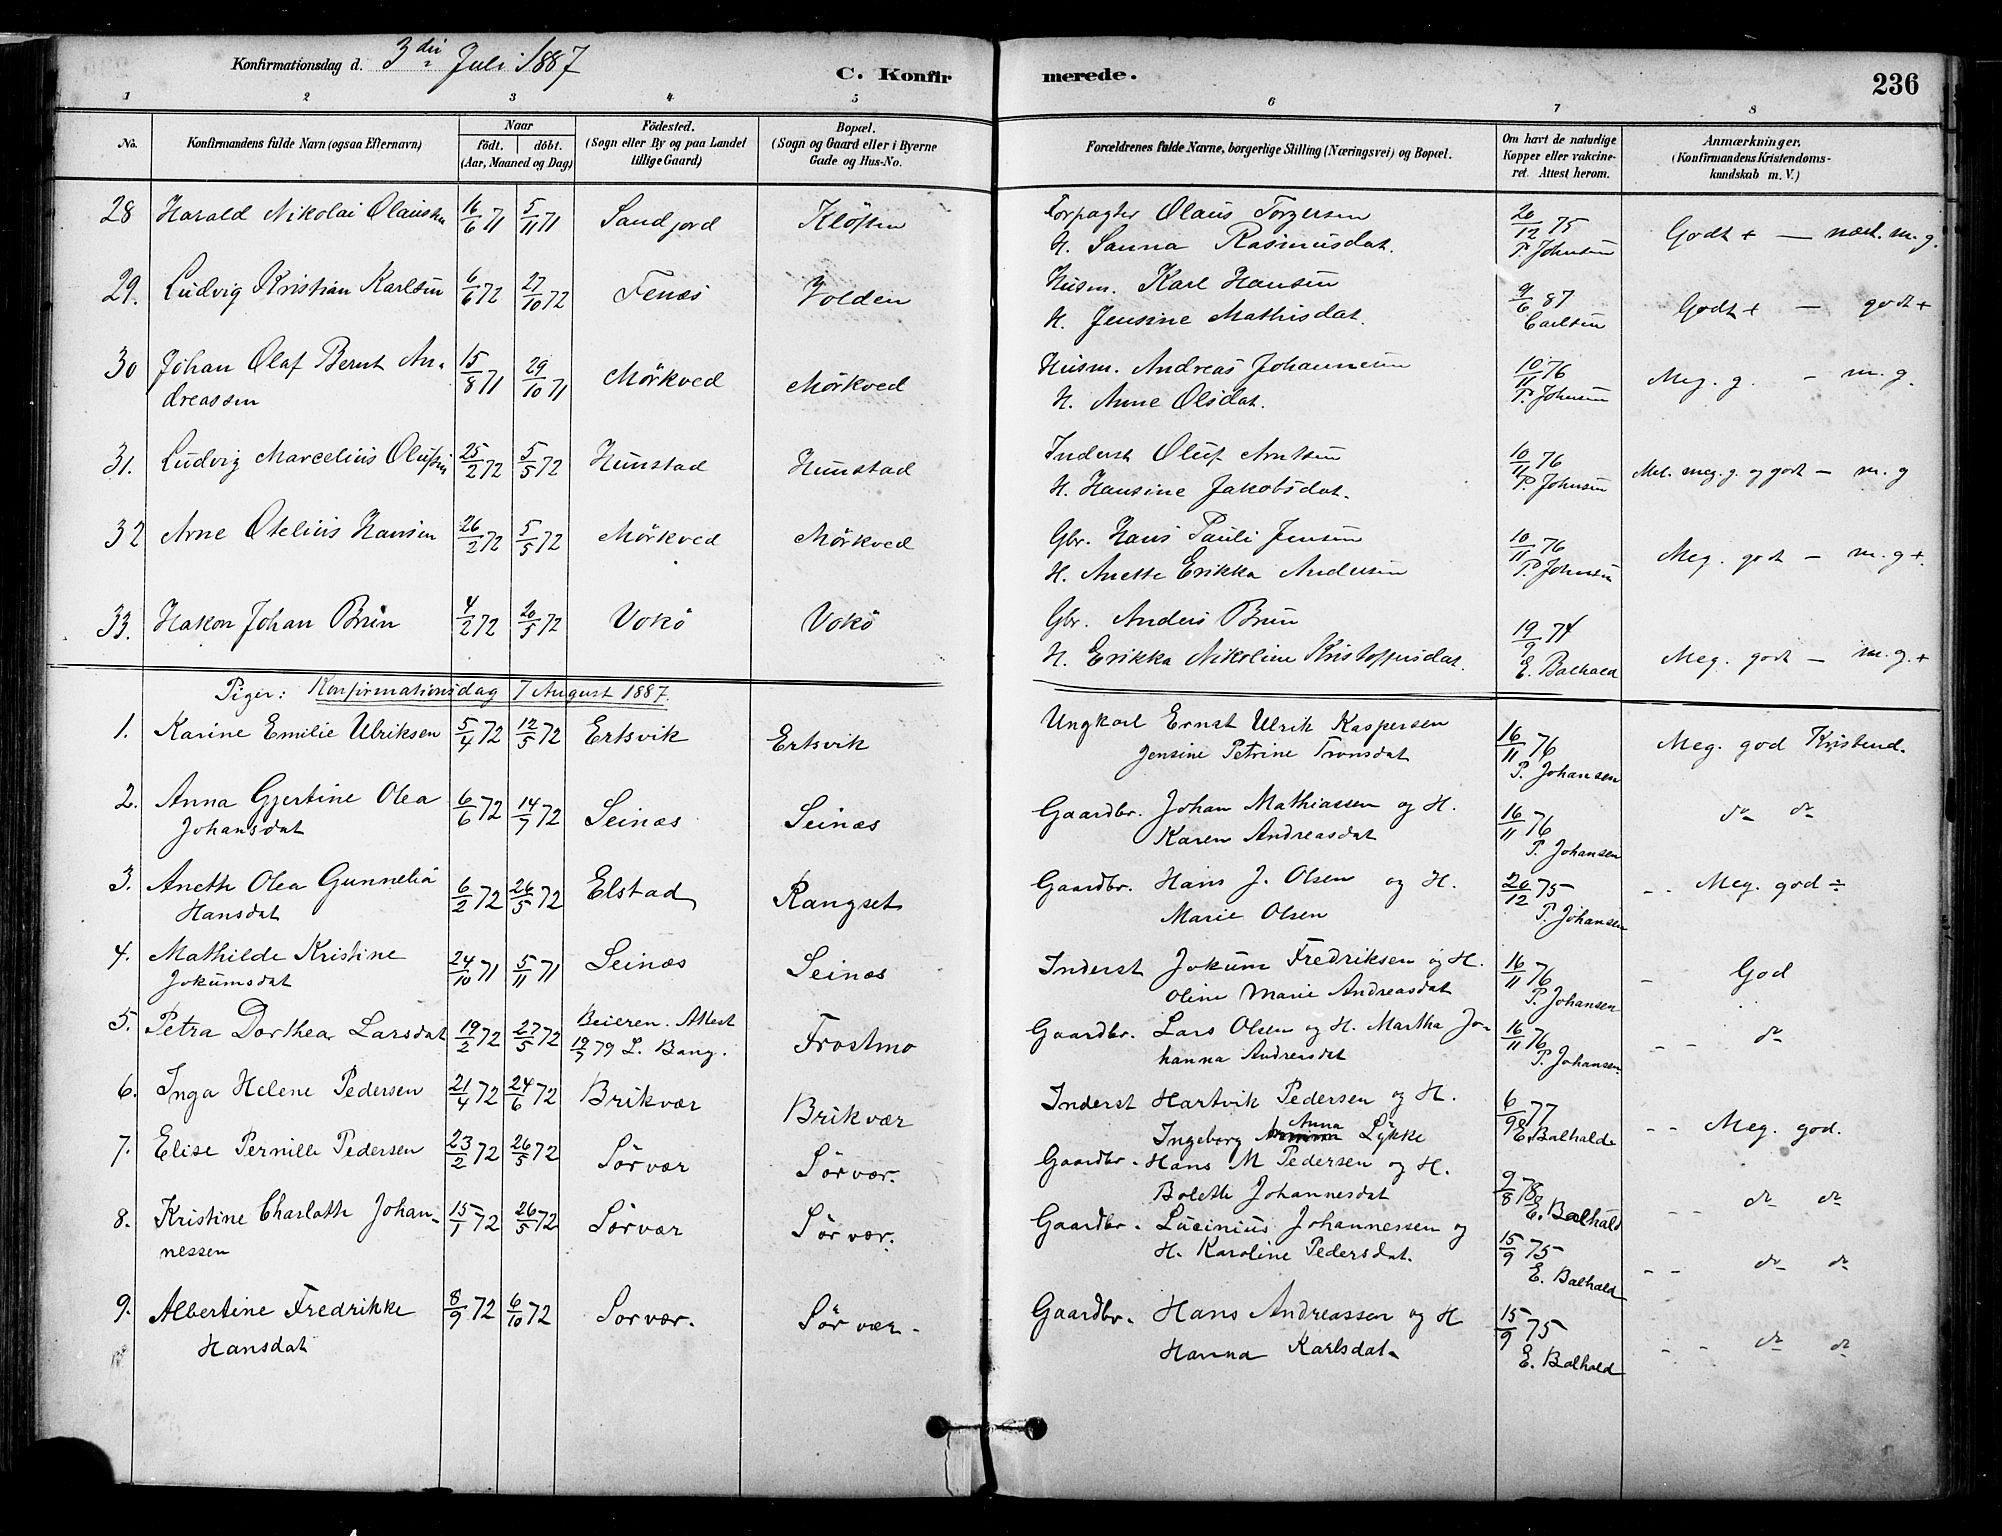 Konfirmationsdag d. 3die Juli 1887
C. Konfirmerede.
236
1 2 3 4 5 6 7 8
No.
Konfirmandens fulde Navn (ogsaa Efternavn)
Naar
födt. döbt.
(Aar, Maaned og Dag)
Födested.
(Sogn eller By og paa Landet
tillige Gaard)
Bopæl.
(Sogn og Gaard eller i Byerne
Gade og Hus-No.
Forældrenes fulde Navne, borgerlige Stilling (Næringsvei) og Bopæl.
Om havt de naturlige
Kopper eller vakcine-
ret. Attest herom.
Anmærkninger.
(Konfirmandens Kristendoms-
kundskab m. V.)
28 Harald Nikolai Olaussen 16/6 71 5/11 71 Sandjord Klöften Forpagter Olaus Torgersen 20/12 75 Godt + — næst. m. g.
H. Sanna Rasmusdat. P. Johnsen
29. Ludvig Kristian Karlsen 6/6 72 27/10 72 Fenæs Volden Husm. Karl Hansen 9/6 87 Godt + — godt +
H. Jensine Mathisdat. Carlsen
30 Johan Olaf Bernt An- 15/8 71 29/10 71 Mörkved Mörkved Husm. Andreas Johannesen 10/11 76 Meg. g. — m. g.
dreassen H. Anne Olsdat. P. Johnsen
31. Ludvig Marcelius Olufsen 25/2 72 5/5 72 Hunstad Hunstad Inderst Oluf Arntsen 10/11 76 Mel. meg. g. og godt — m. g
H. Hansine Jakobsdat. P. Johnsen
32 Arne Otelius Hansen 26/2 72 5/5 72 Mörkved Mörkved Gbr. Hans Pauli Jensen 10/11 76 Meg. godt — m. g +.
H. Anette Erikka Andersen P. Johnsen
33. Hakon Johan Brun 4/2 72 20/5 72 Vokö Vokö Gbr. Anders Brun 19/9 74 Meg. godt — m. g. +
H. Erikka Nikoline Kristoffersdat. E. Balhald
Piger: Konfirmationsdag 7 August 1887.
1. Karine Emilie Ulriksen 5/4 72 12/5 72 Ertsvik Ertsvik Ungkarl Ernst Ulrik Kaspersen 16/11 76 Meg. god Kristend.
Jensine Petrine Tronsdat P. Johansen
2. Anna Gjertine Olea 6/6 72 14/7 72 Seinæs Seinæs Gaardbr. Johan Mathiassen og H. 16/11 76 do do
Johansdat Karen Andreasdat P. Johansen
3. Anette Olea Gunnelia 6/2 72 26/5 72 Elstad Rangset Gaardbr. Hans J. Olsen og H. 20/12 75 - - Meg. god ÷
Hansdat Marie Olsen P. Johansen
4. Mathilde Kristine 24/10 71 5/11 71 Seinæs Seinæs Inderst Jokum Fredriksen og H. 16/11 76 - God
Jokumsdat Oline Marie Andreasdat P. Johansen
5. Petra Dorthea Larsdat 19/2 72 27/5 72 Beieren. Attest Frostmo Gaardbr. Lars Olsen og H. Martha Jo- 16/11 76 - - do
19/7 79 L. Bang. hanna Andreasdat P. Johansen.
6. Inga Helene Pedersen 21/4 72 24/6 72 Brikvær Brikvær Inderst Hartvik Pedersen og H. 6/9 77 - - Meg. god.
Ingeborg Anna Lykke E. Balhalde
7. Elise Pernille Pedersen 23/2 72 26/5 72 Sörvær Sörvær. Gaardbr. Hans M Pedersen og H. 9/8 78 - - do do
Bolette Johannesdat E. Balhald
8. Kristine Charlotte Johan- 15/1 72 26/5 72 Sörvær Sörvær. Gaardbr. Lucinius Johannessen og 15/9 75 - - do do
nessen H. Karoline Pedersdat. E. Balhald
9. Albertine Fredrikke 8/9 72 6/10 72 Sorvær. Sörvær. Gaardbr. Hans Andreassen og H 15/9 75 - - do do
Hansdat Hanna Karlsdat. E. Balhald